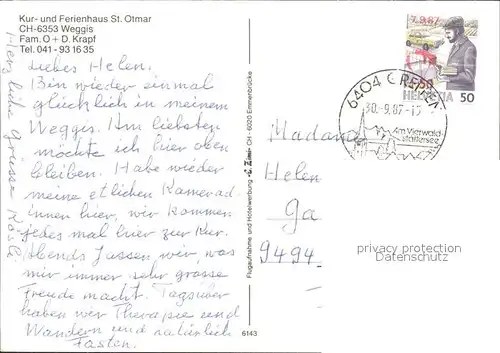 Kur- und Ferienhaus St. Otmar
CH-6353 Weggis
Fam. O + D. Krapf
Tel. 041 - 93 16 35
Liebes Helen.
Bin wieder einmal
glücklich in meinem
Weggis. Am liebsten
möchte ich hier oben
bleiben. Habe wieder
meine etlichen Kamerad
innen hier, wir kommen
jedes mal hier zur Kur.
Abends Jassen wir, was
mir immer sehr grosse
Freude macht. Tagsüber
haben wir Therapie und
Wandern und natürlich
Fasten.
Herzliche Grüsse Rösli
Flugaufnahme und Hotelwerbung CH - 6020 Emmenbrücke
6143
7.9.87
HELVETIA 50
6404 GREPPEN
30.-9.87-15
Am Vierwald-
stättersee
Madame
Helen
Ga
9494
privacy protection
Datenschutz